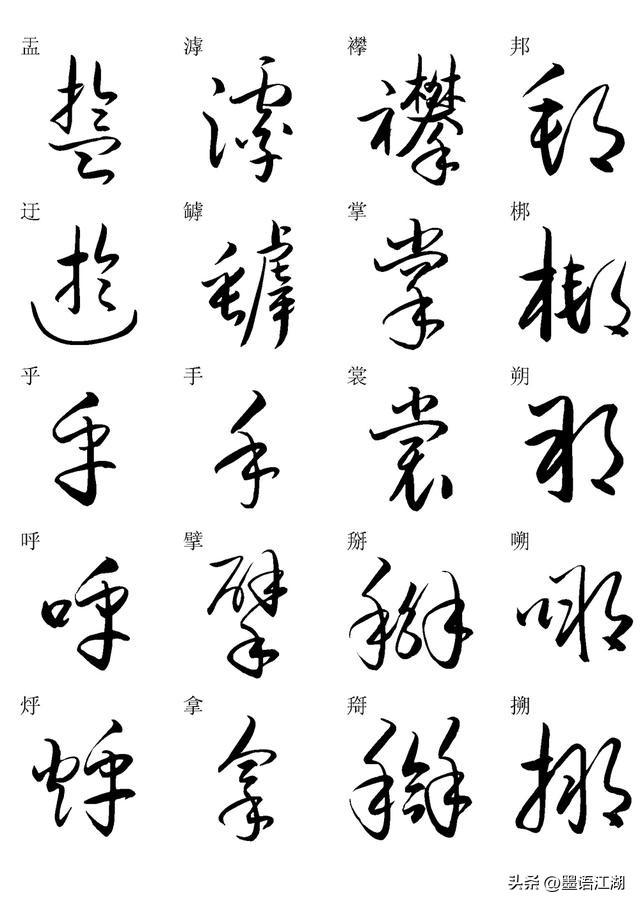 盂 滹 襻 邦
迂 罅 掌 梆
乎 手 裳 朔
呼 擘 掰 嗍
烀 拿 搿 搠
头条 @墨语江湖